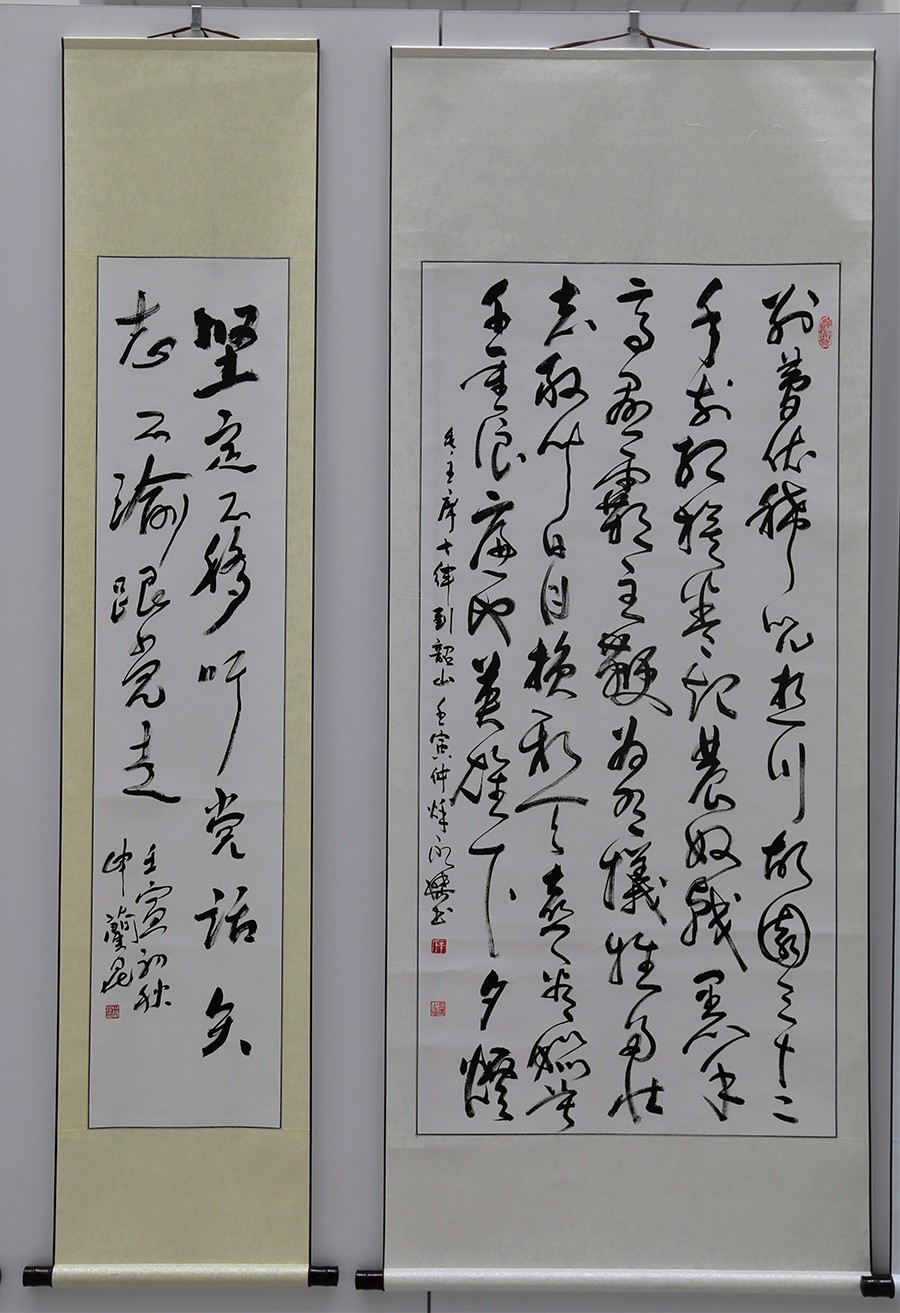 别夢依稀咒逝川故園三十二
年前红旗卷起農奴戟黑手
高悬霸主鞭为有犧牲多壮
志敢叫日月换新天喜看稻菽
千重浪遍地英雄下夕烟
毛主席七律到韶山壬寅仲秋永书
坚定不移听党话矢
志不渝跟党走
壬寅初秋
申